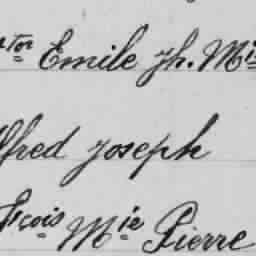 Emile Jh. Mie
lfred Joseph
çois Mie Pierre